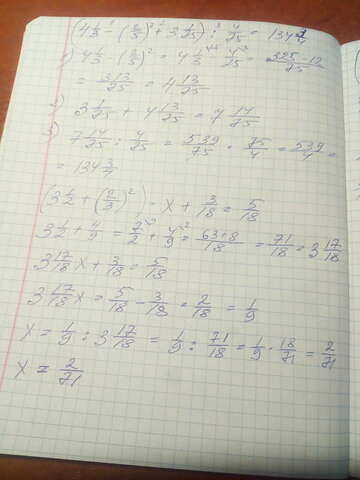 (4 1/3 - (2/5)² + 3 1/25) : 4/25 = 134 3/4
1) 4 1/3 - (2/5)² = 4 1/3 - 4/25 = 325-12/75 =
= 313/75 = 4 13/75
2) 3 1/25 + 4 13/25 = 7 14/75
3) 7 14/25 : 4/25 = 539/75 · 75/4 = 539/4 =
= 134 3/4
(3 1/2 + (2/3)²) · x + 3/18 = 5/18
3 1/2 + 4/9 = 7/2 + 4/9 = 63+8/18 = 71/18 = 3 17/18
3 17/18 x + 3/18 = 5/18
3 17/18 x = 5/18 - 3/18 = 2/18 = 1/9
x = 1/9 : 3 17/18 = 1/9 : 71/18 = 1/9 · 18/71 = 2/71
x = 2/71